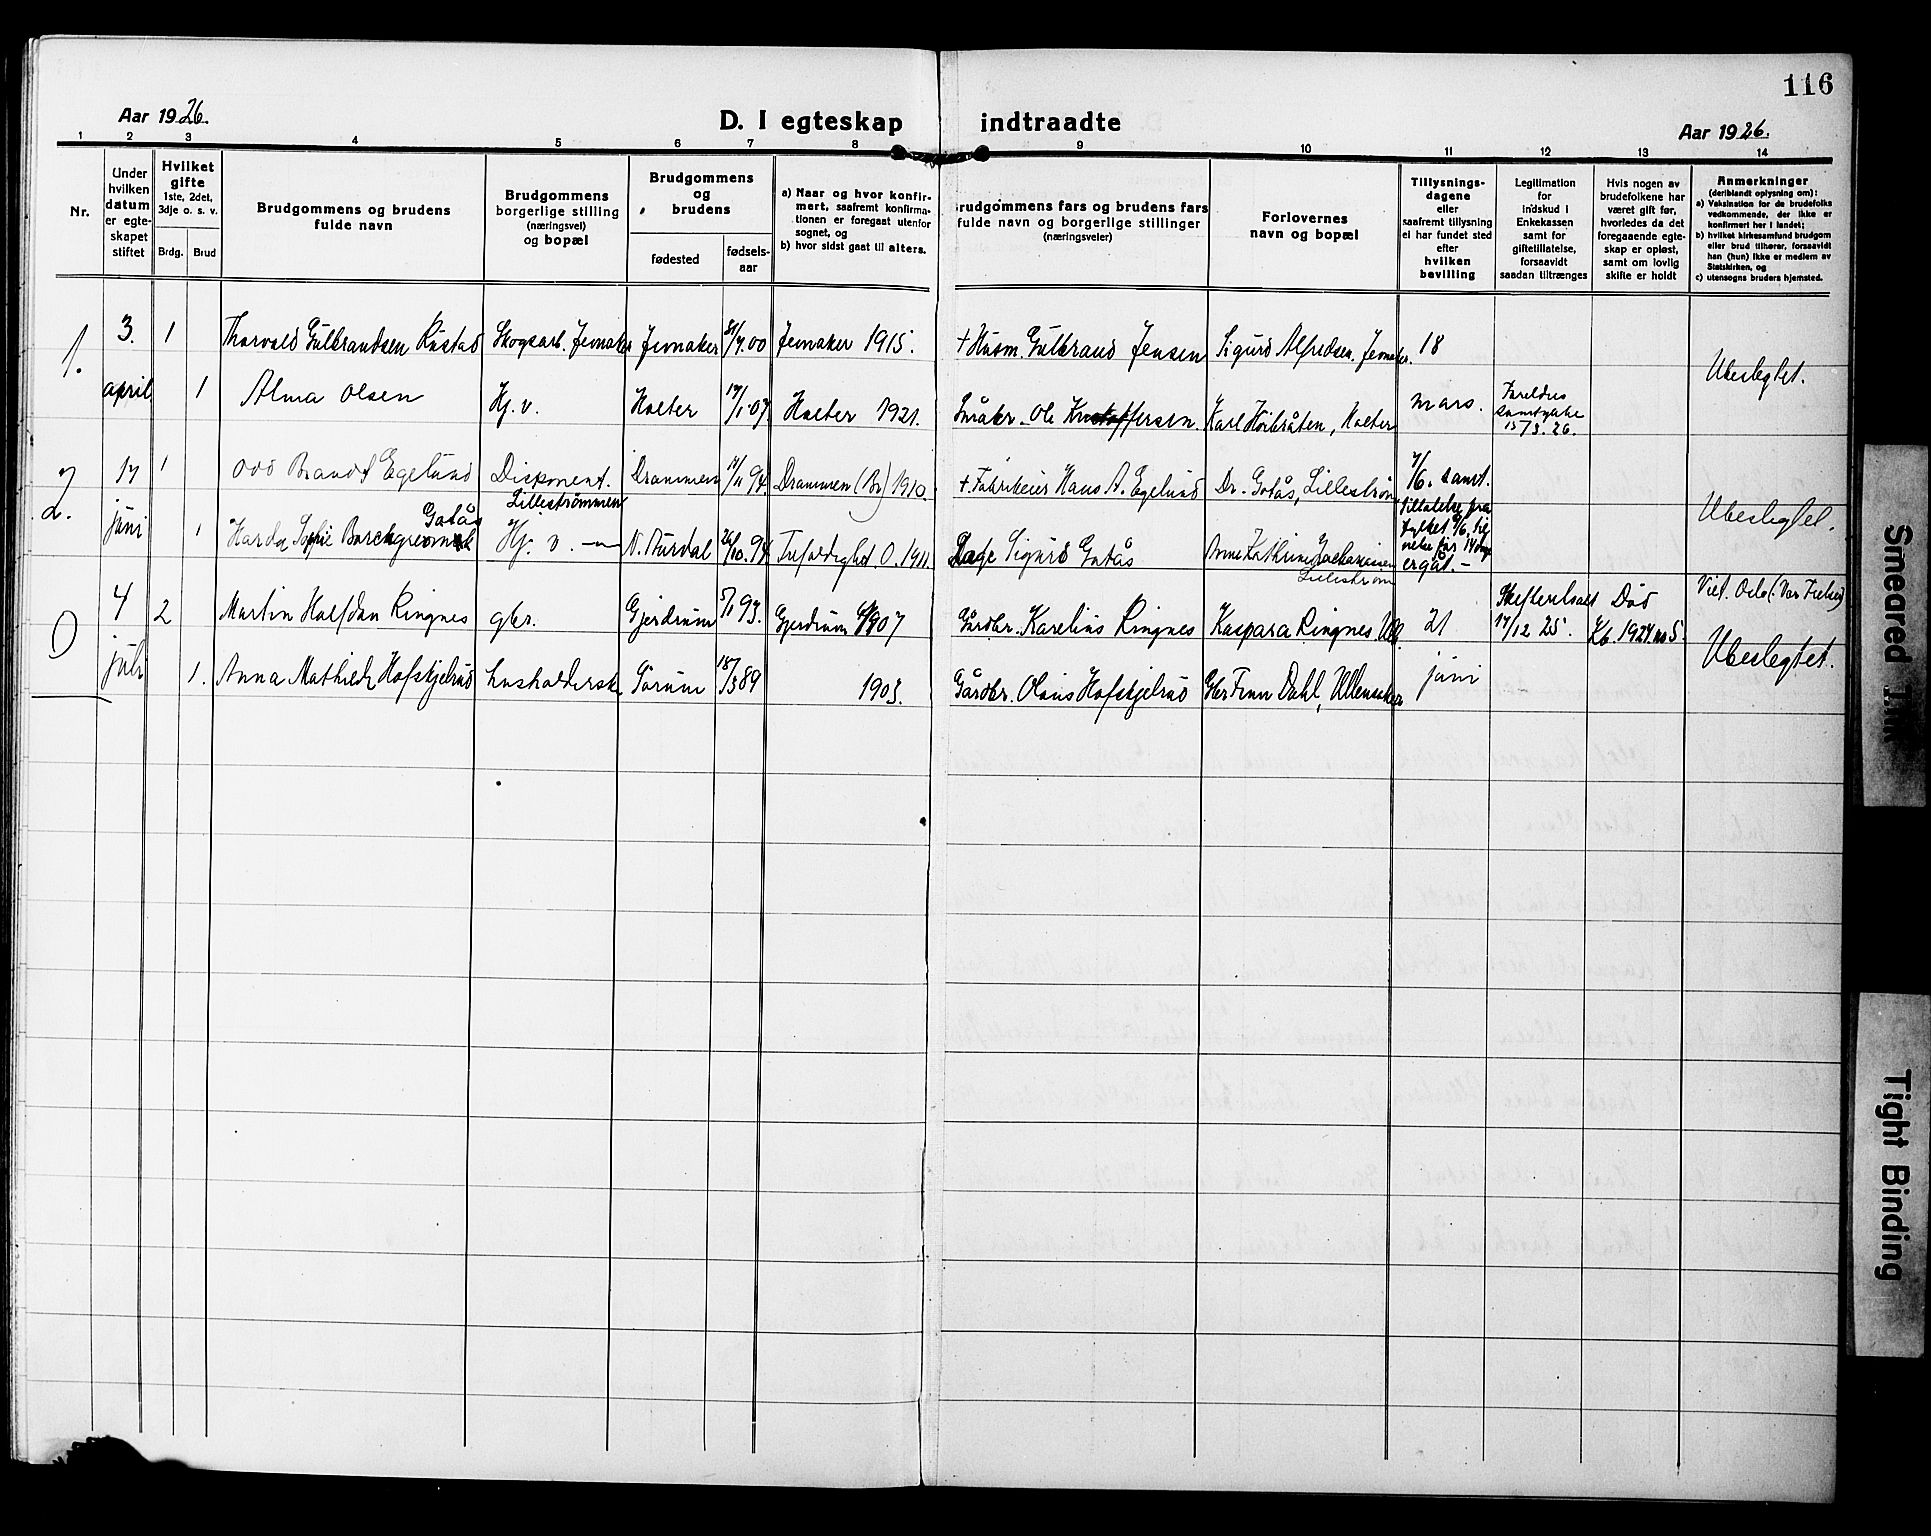 116
Aar 1926.
D. I egteskap indtraadte
Aar 1926.
1 2 3 4 5 6 7 8 9 10 11 12 13 14
Nr.
Under hvilken datum er egteskapet stiftet
Hvilket gifte 1ste, 2det, 3dje o. s. v.
Brdg. Brud
Brudgommens og brudens fulde navn
Brudgommens borgerlige stilling (næringsvei) og bopæl
Brudgommens og brudens
fødested
fødselsaar
a) Naar og hvor konfirmert, saafremt konfirmationen er foregaat utenfor sognet, og
b) hvor sidst gaat til alters.
Brudgommens fars og brudens fars fulde navn og borgerlige stillinger (næringsveier)
Forlovernes navn og bopæl
Tillysningsdagene eller saafremt tillysning ei har fundet sted efter hvilken bevilling
Legitimation for indskud i Enkekassen samt for giftetillatelse, forsaavidt saadan tiltrænges
Hvis nogen av brudefolkene har været gift før, hvorledes da det foregaaende egteskap er opløst, samt om lovlig skifte er holdt
Anmerkninger (deriblandt oplysning om):
a) Vaksination for de brudefolks vedkommende, der ikke er konfirmert her i landet;
b) hvilket kirkesamfund brudgom eller brud tilhører, forsaavidt han (hun) ikke er medlem av Statskirken, og
c) utensogns bruders hjemsted.
1. 3. 1 Thorvald Gulbrandsen Rustad Skogsarb. Jevnaker Jevnaker 31/7.00 Jevnaker 1915. + Husm. Gulbrand Jensen Sigurd Alfredsen, Jevnaker. 18
Ubeslegtet.
april 1 Alma Olsen Hj. v. Holter 17/1.07 Holter 1921. Småbr. Ole Kristoffersen. Karl Höibråten, Holter mars. Foreldres samtykke 15/3.26.
2. 17 1 Odd Brandt Egelund Disponent. Lilleströmmen Drammen 17/11 94. Drammen (Br) 1910. + Fabrikeier Hans A. Egelund Dr. Gotås, Lilleström 7/6. samt. tillatelse fra fylket
Ubeslegtet.
juni 1 Sofie Borchgrevink Gotås Hj. v. — N. Aurdal 26/10.94 Trefoldighed O. 1911. Læge Sigurd Gotås Anne Kathrine Lilleström
0 4 2 Martin Halfdan Ringnes gbr. Gjerdrum 5/1 93. Gjerdrum 1907 Gårdbr. Karelius Ringnes Kaspara Ringnes, Ull. 21 Skifteretsatt 17/12 25. Död Kb. 1924 no 5. Viet. Oslo (Vor Frelser)
Ubeslegtet.
juli 1. Anna Mathilde Hofskjelrud husholderske Sörum 18/3 89 1903. Gårdbr. Olaus Hofskjelrud Gbr Finn Dahl, Ullensaker juni
Smeared Ink
Tight Binding